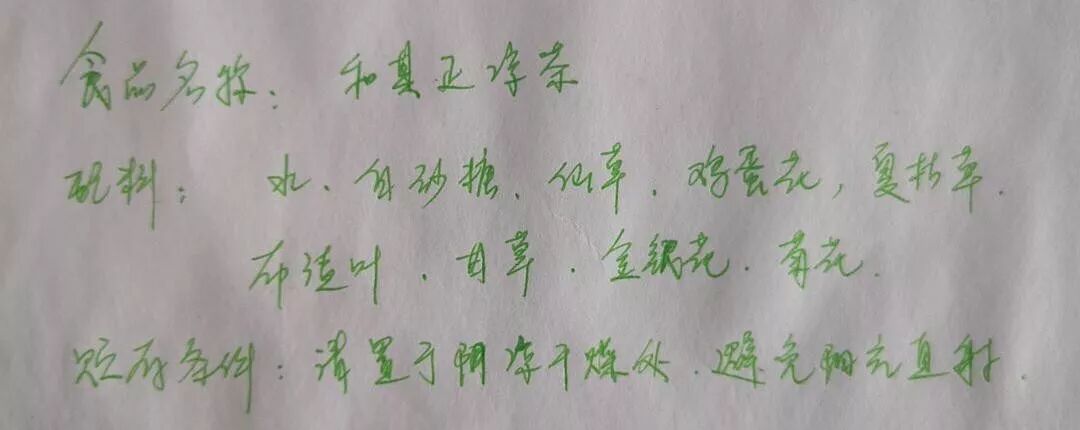 食品名称：和其正凉茶
配料：水、白砂糖、仙草、鸡蛋花，夏枯草、
布渣叶、甘草、金银花、菊花.
贮存条件：请置于阴凉干燥处、避免阳光直射.